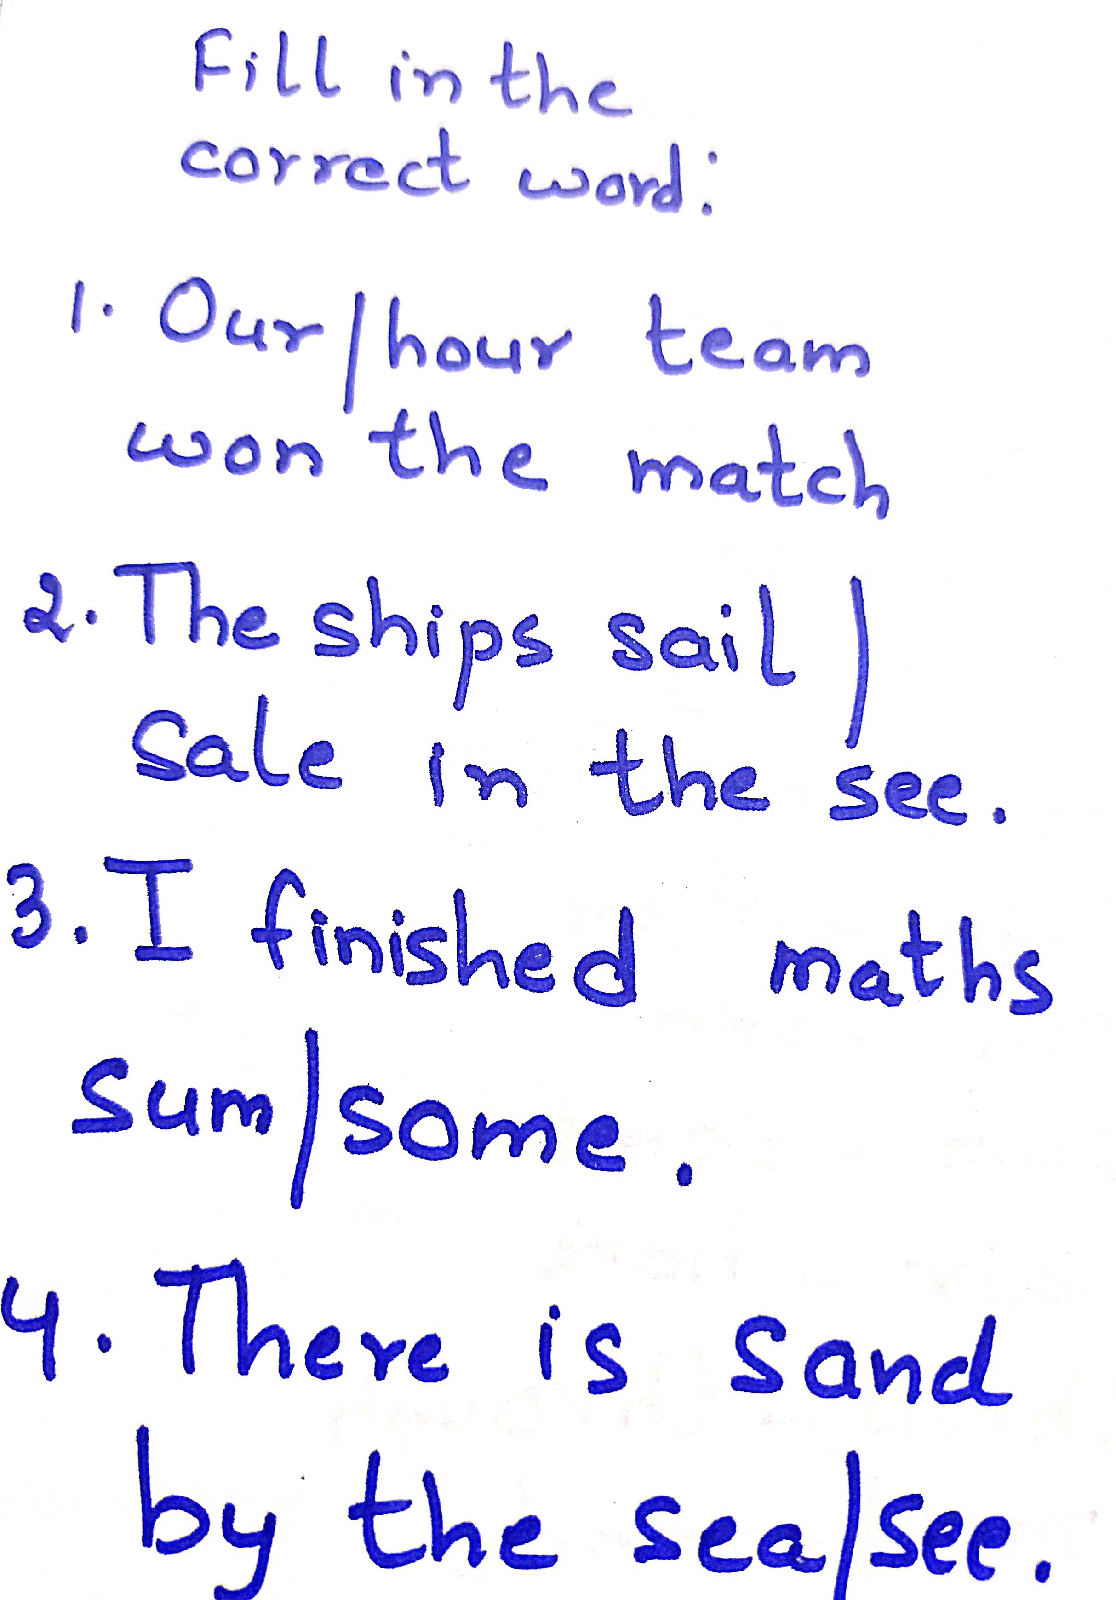 Fill in the
correct word:
1. Our/hour team
won the match
2. The ships sail/
Sale in the see.
3. I finished maths
Sum/some.
4. There is Sand
by the sea/see.